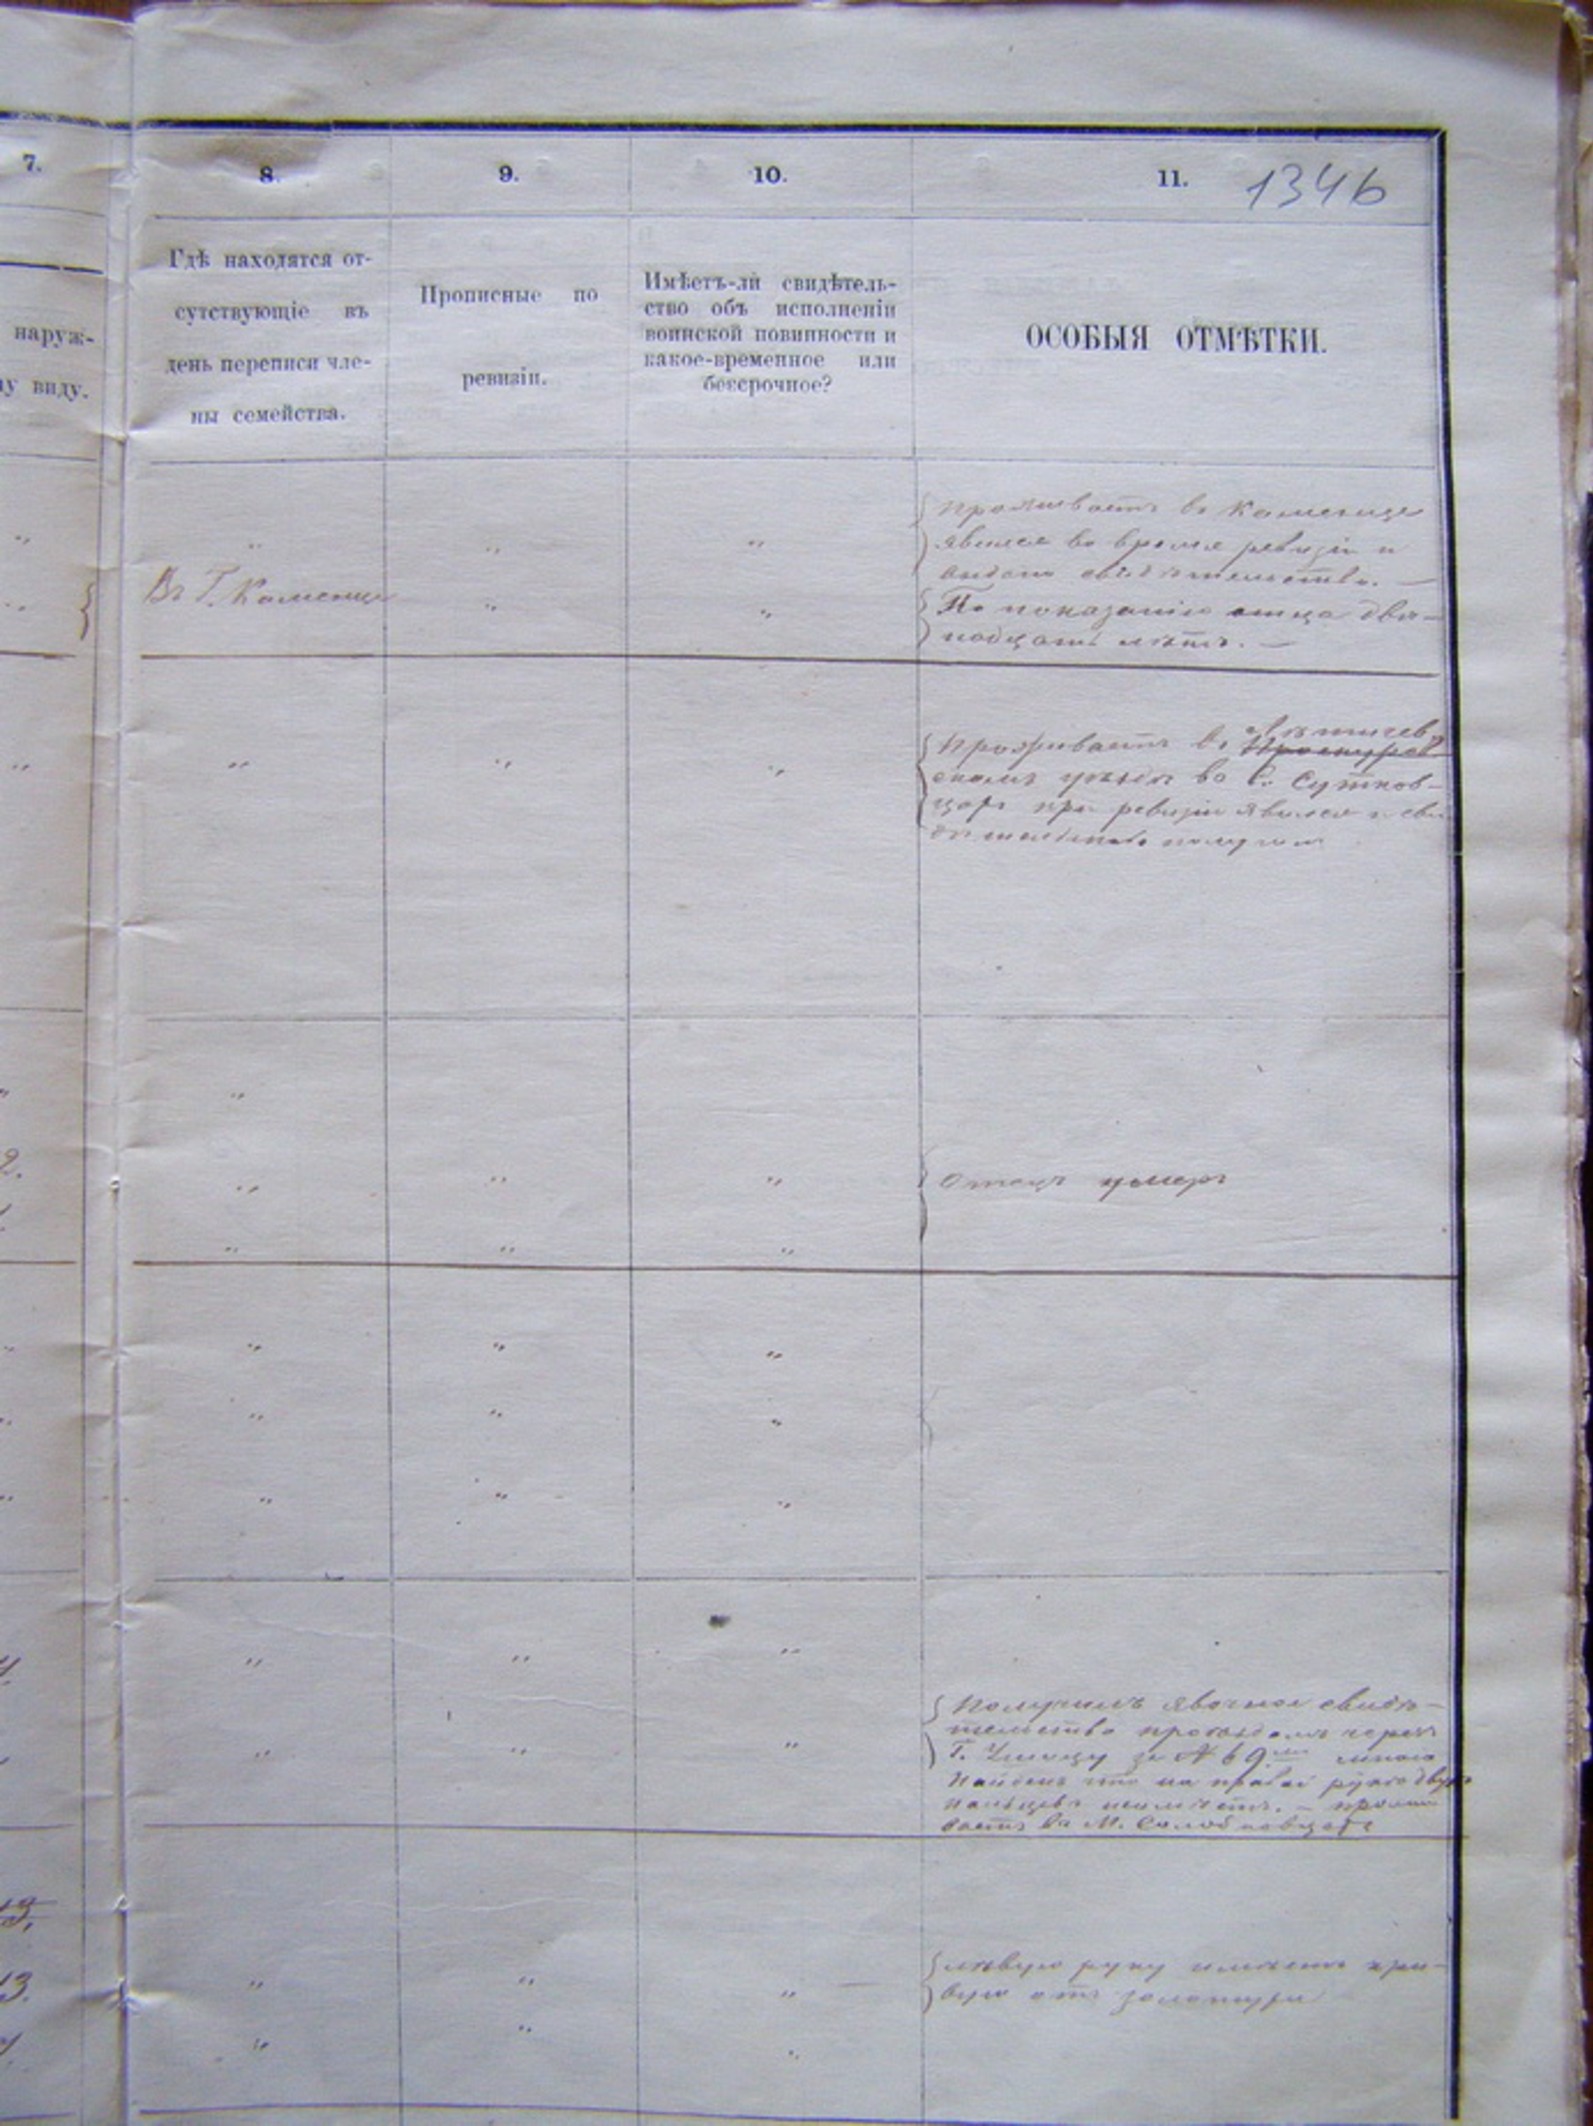 7.
8.
9.
10.
11.
1346
наруж-
му виду.
Гдѣ находятся от-
сутствующіе въ
день переписи чле-
ны семейства.
Прописные по
ревизіи.
Имѣетъ-ли свидѣтель-
ство объ исполненіи
воинской повинности и
какое-временное или
безсрочное?
ОСОБЫЯ ОТМѢТКИ.
Проживаетъ въ Каменцѣ
явился во время ревизіи и
выдано свидѣтельство. —
Въ Г. Каменцѣ
По показанію отца двѣ-
надцать лѣтъ. —
Летичев-
Проживаетъ въ Проскуров
скомъ уѣздѣ во С. Сутков-
цахъ при ревизіи явился и сви
дѣтельство получил
2.
Отецъ умеръ
Получилъ явочное свидѣ-
тельство проѣздомъ черезъ
Г. Ушицу за № 69
Найдено что на правой рукѣ двух
пальцевъ неимѣетъ. — прожи
ваетъ въ М. Солобковцахъ
13,
13.
лѣвую руку имѣетъ кри-
вую отъ золотухи